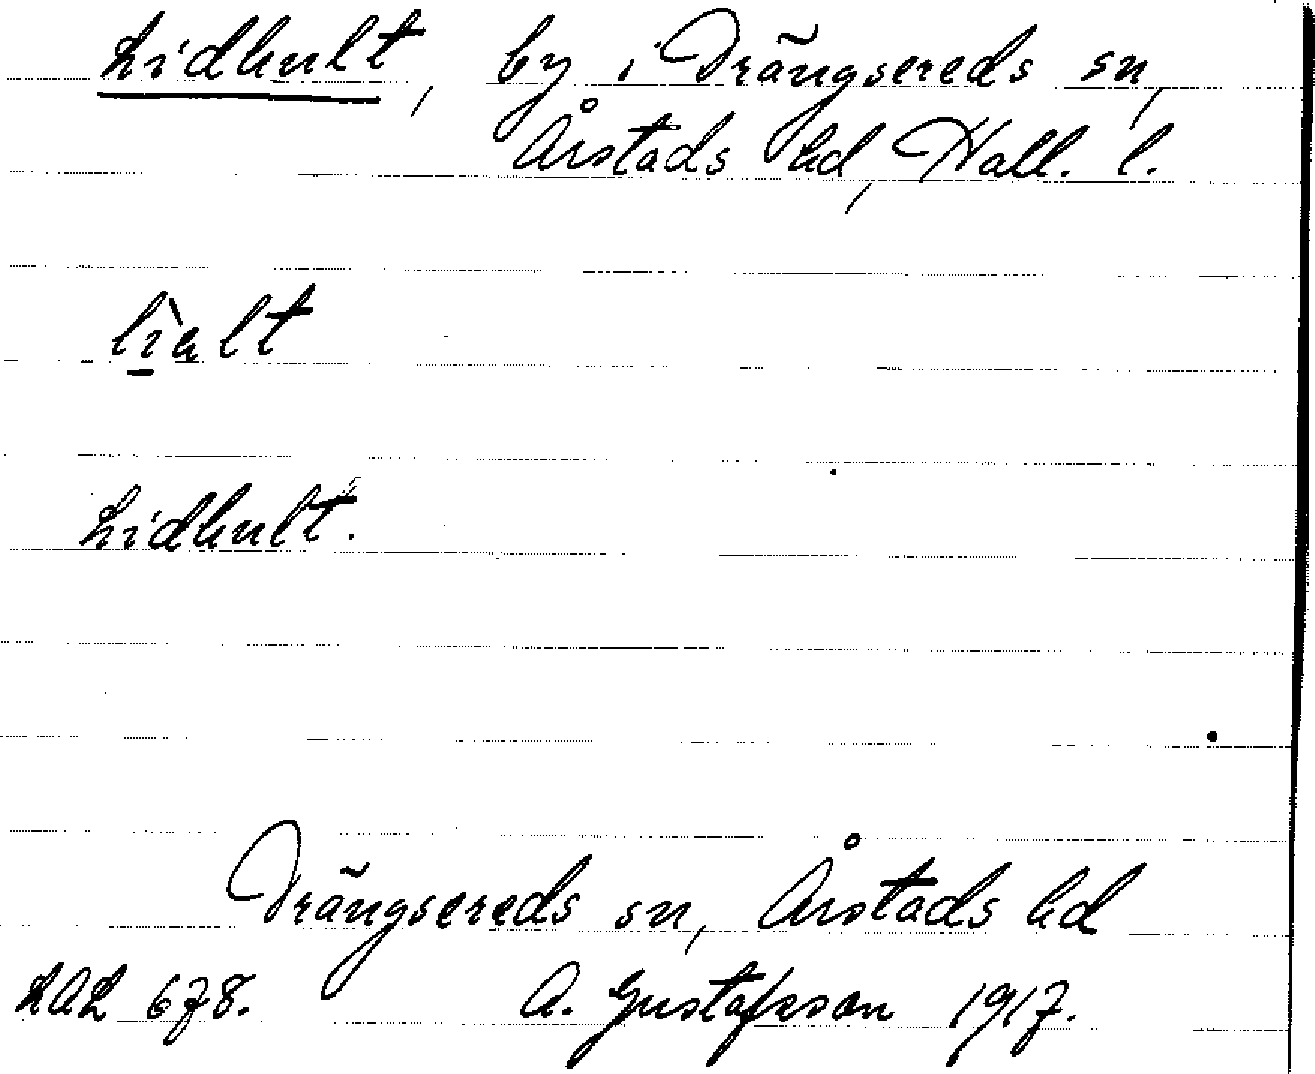 Lidhult, by i Drängsereds sn,
Årstads hd, Hall. l.
lìalt
Lidhult.
Drängsereds sn, Årstads hd
LAL 678. A. Gustafsson 1917.